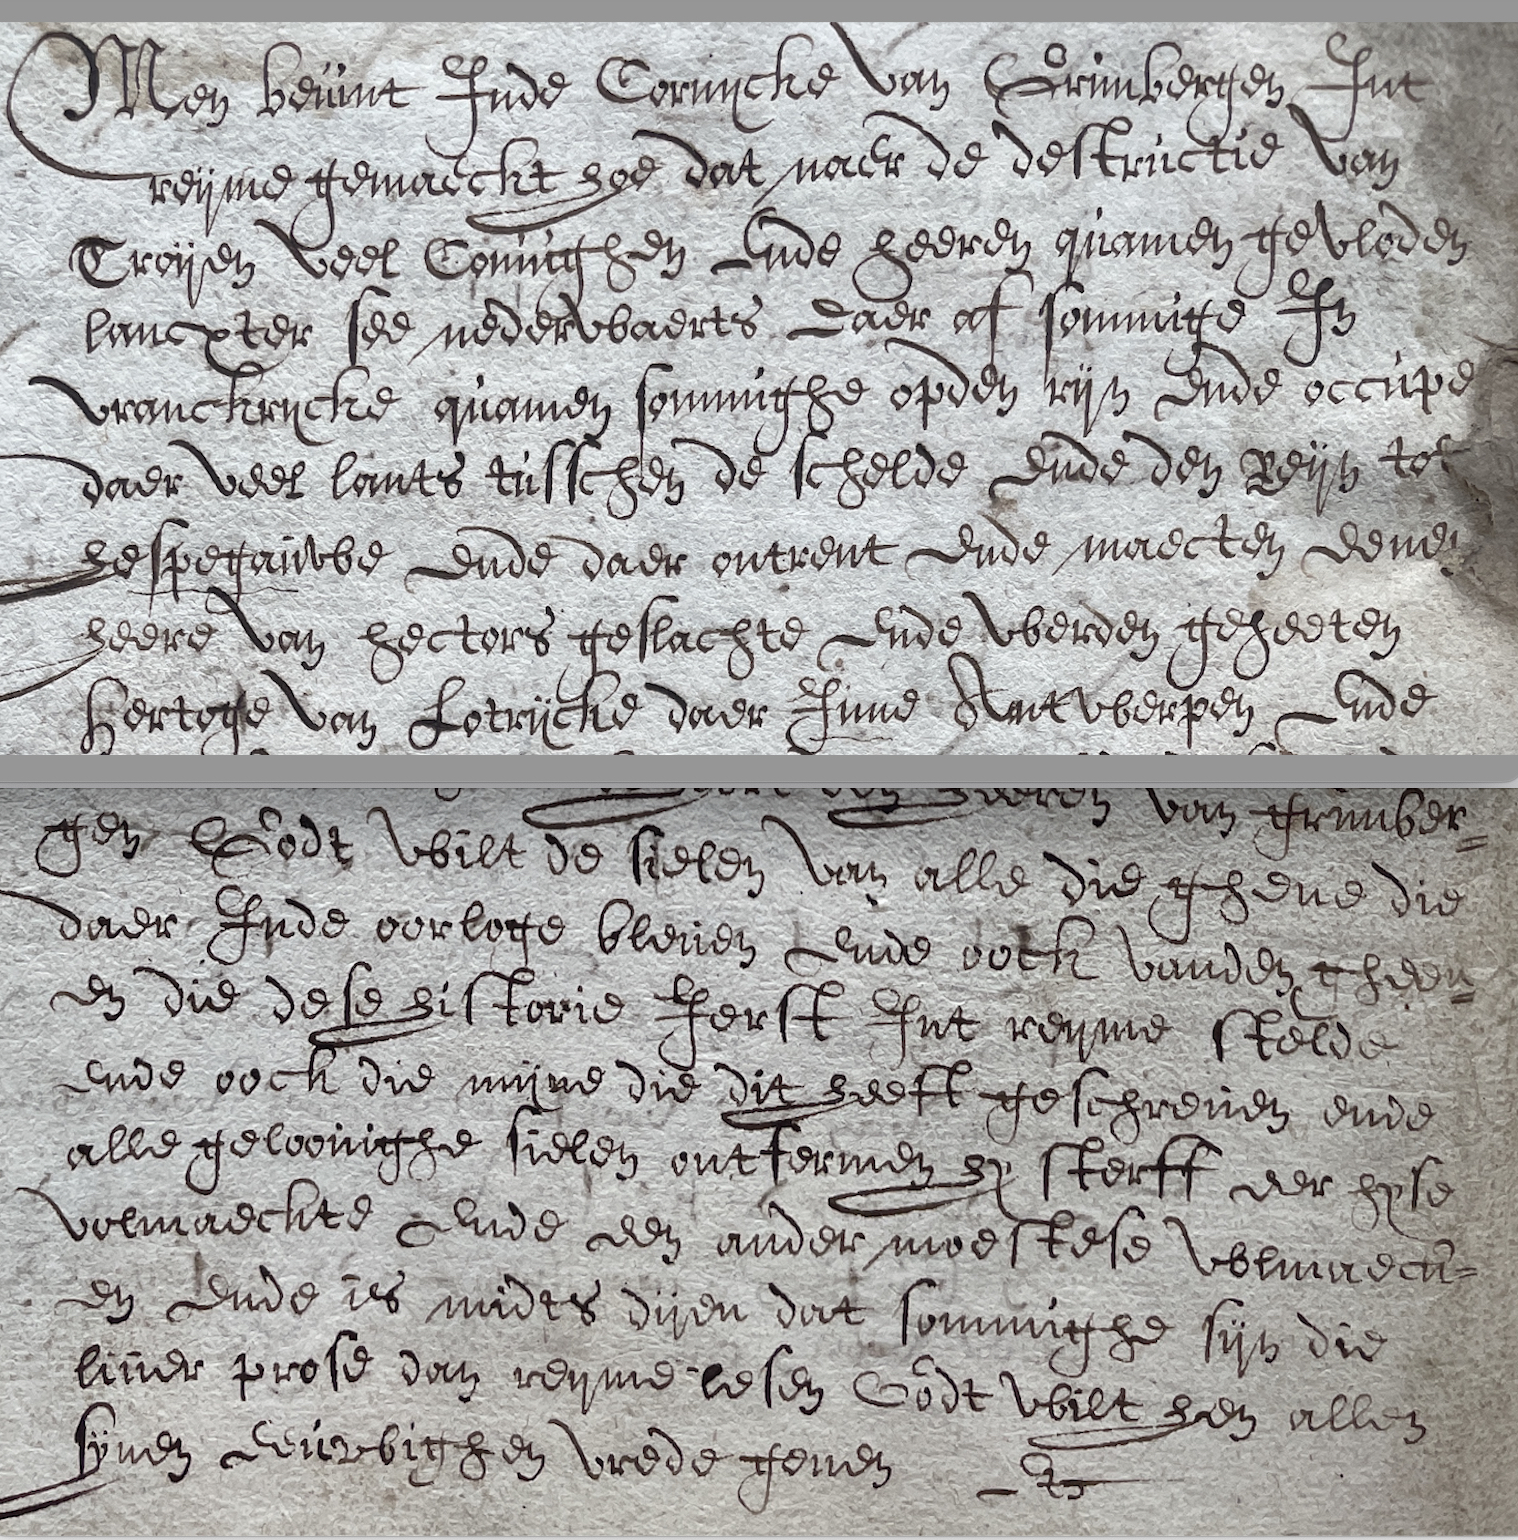 Men beuint Inde Cornycke van Grimbergen Int
reyme gemaeckt hoe dat naer de destructie van
Troyen veel Coninghen Ende heeren quamen gevloden
lancxter see nederwaerts Daer af sommige In
vranckrycke quamen sommighe opden rijn Ende occupe
daer veel lants tusschen de schelde Ende den Reijn tot
hespegauwe Ende daer ontrent Ende maecten eenen
heere van hectors geslachte Ende werden geheeten
Hertoge van Lotrijcke daer Inne Antwerpen Ende
van grimber=
gen Godt wilt de sielen van alle die ghene die
daer Inde oorloge bleuen Ende oock vanden gheen=
en die dese historie Ierst Int reyme stelde
Ende oock die mijne die dit heeft geschreuen ende
alle geloouighe sielen ontfermen hy sterff eer hyse
volmaeckte Ende een ander moestese volmaeck=
en Ende is midts dijen dat sommighe sijn die
liuer prose dan reyme lesen Godt wilt hen allen
synen Eeuwighen vrede geuen